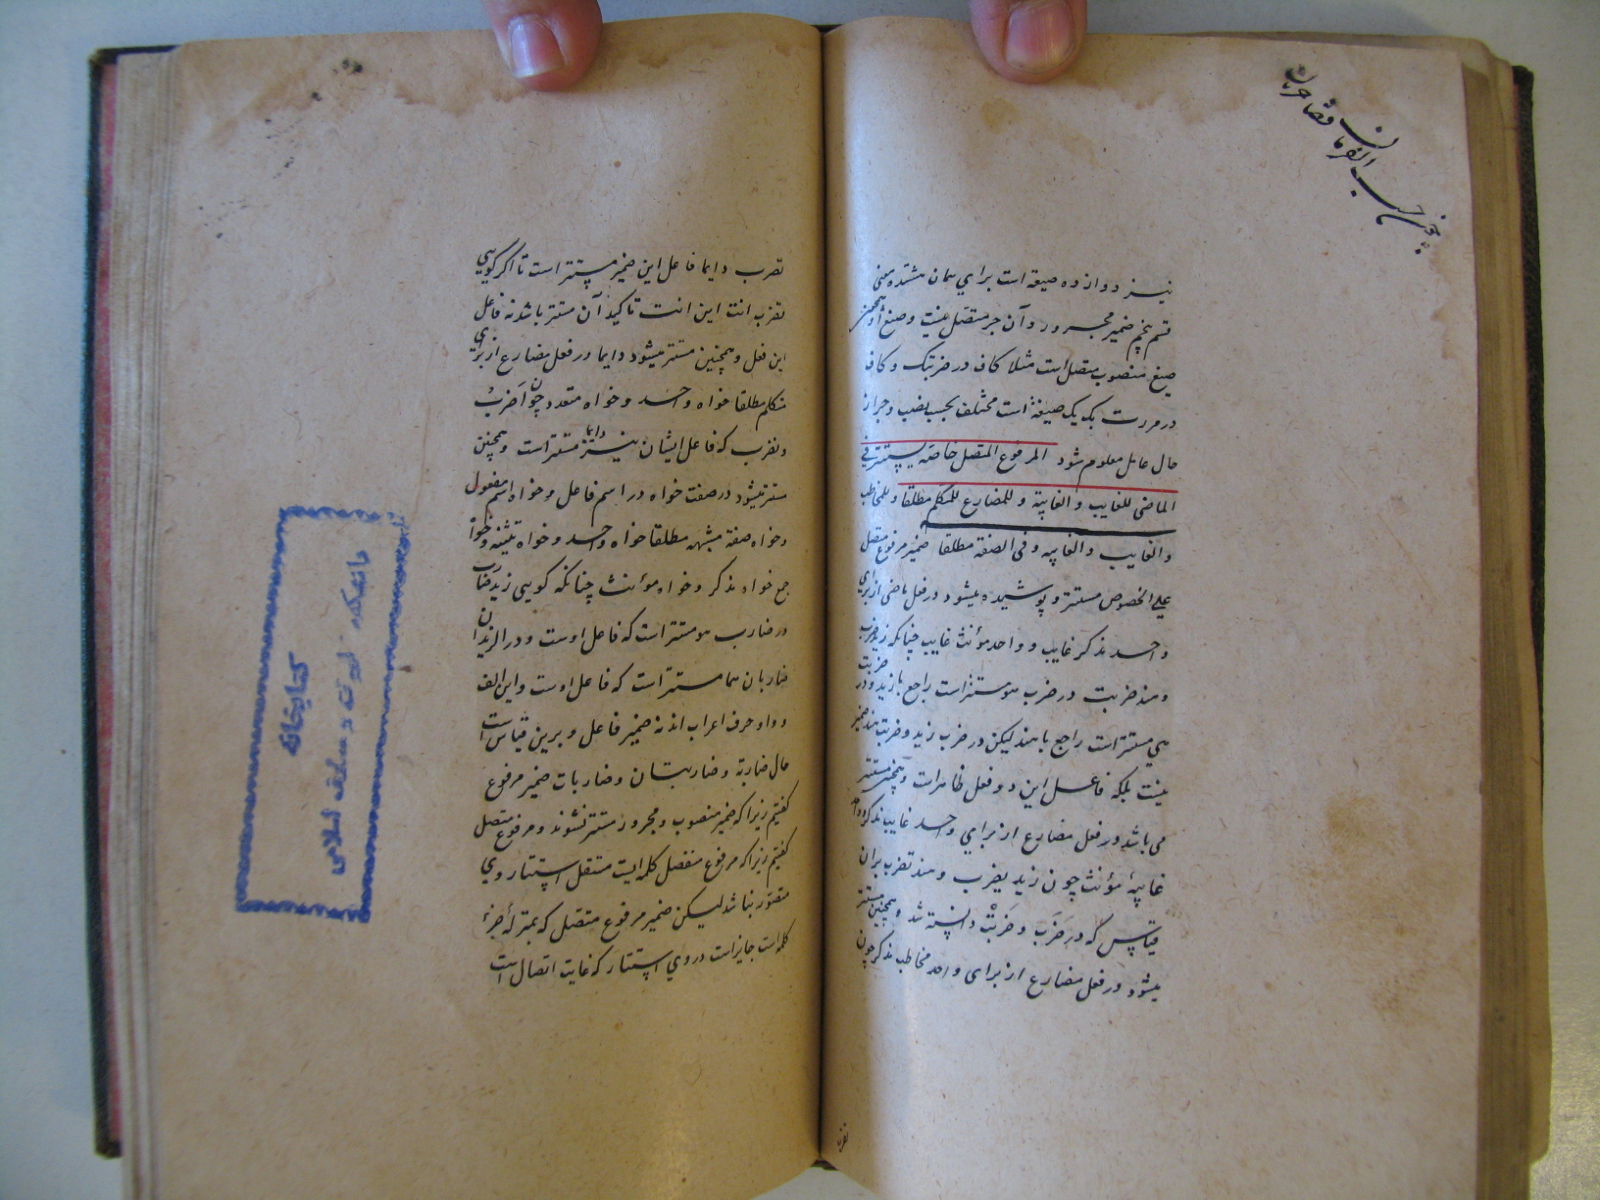 برحسب الفرمان قضا جریان
نیز دوازده صیغه است برای همان هشتده معنی
قسم پنجم ضمیر مجرور و آن جز متصل نیست و صیغ او همچنین
صیغ منصوب متصل است مثلا کاف در ضربتک و کاف
در مررت بک یک صیغه است مختلف بحسب نصب و جر از
حال عامل معلوم شود المرفوع المتصل خاصة یستتر فی
الماضی للغایب و الغایبة و للمضارع للمتکلم مطلقا و للمخاطب
والغایب والغایبه و فی الصفة مطلقا ضمیر مرفوع متصل
علی الخصوص مستتر و پوشیده میشود در فعل ماضی از برای
واحد مذکر غایب و واحد مؤنث غایب چنانکه زید ضرب
و هند ضربت در ضرب هو مستتر است راجع بازید و در ضربت
هی مستتر است راجع با هند لیکن در ضرب زید و ضربت هند ضمیر
نیست بلکه فاعل این دو فعل ظاهرات و همچنین مستتر
می باشد در فعل مضارع از برای واحد غایب مذکر و واحد
غایبهٔ مؤنث چون زید یضرب و هند تضرب بران
قیاس که در ضَرَبَ و ضَرَبَتْ دانسته شد و همچنین مستتر
میشود در فعل مضارع از برای واحد مخاطب مذکر چون
تضرب
تضرب دایما فاعل این ضمیر مستتر است تا اگر گویی
تضرب انت این انت تاکید آن مستتر باشد نه فاعل
این فعل و همچنین مستتر میشود دایما در فعل مضارع از برای
متکلم مطلقا خواه واحد و خواه متعدد چون اَضْرِبُ
و نضرب که فاعل ایشان نیز دایما مستتر است و همچنین
مستتر میشود در صفت خواه در اسم فاعل و خواه اسم مفعول
و خواه صفة مشبهه مطلقا خواه واحد و خواه تثنیه و خواه
جمع خواه مذکر و خواه مؤنث چنانکه گویی زید ضارب
در ضارب هو مستتر است که فاعل اوست و در الزیدان
ضاربان هما مستتر است که فاعل اوست و این الف
و واو حرف اعراب اند نه ضمیر فاعل و برین قیاس است
حال ضاربة و ضاربتان و ضاربات ضمیر مرفوع
گفتیم زیرا که ضمیر منصوب و مجرور مستتر نشوند و مرفوع متصل
گفتیم زیرا که مرفوع منفصل کلمه ایست مستقل استتار وی
متصور نباشد لیکن ضمیر مرفوع متصل که بمنزله جزء
کلمه است جایز است در وی استتار که غایت اتصال است
کتابخانه
دانشکده الهیات و معارف اسلامی